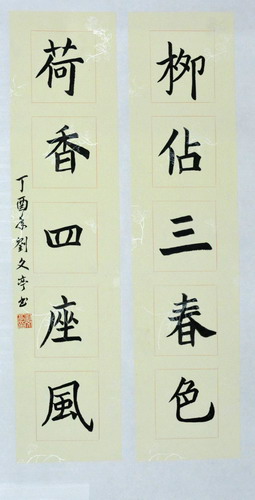 柳佔三春色
荷香四座風
丁酉年劉文亭書